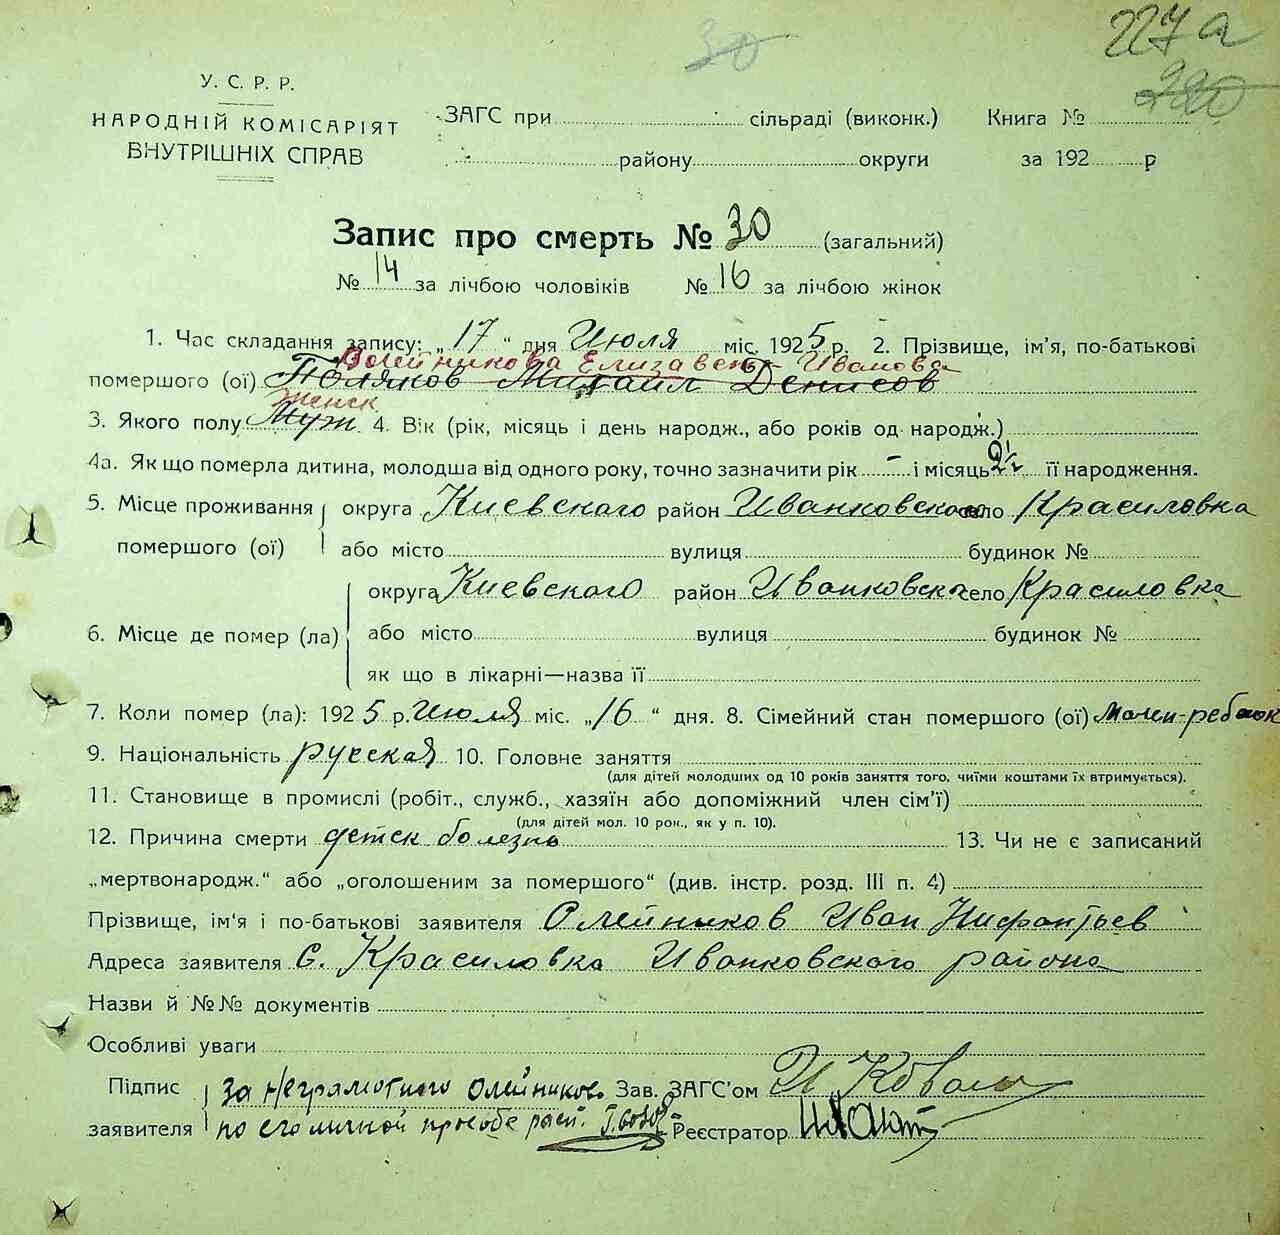 30
227а
220
У. С. Р. Р.
НАРОДНІЙ КОМІСАРІЯТ
ВНУТРІШНІХ СПРАВ
ЗАГС при сільраді (виконк.) Книга №
району округи за 192 р
Запис про смерть № 30 (загальний)
№ 14 за лічбою чоловіків № 16 за лічбою жінок
1. Час складання запису: „17" дня Июля міс. 1925 р. 2. Прізвище, ім'я, по-батькові
Олейникова Елизавета Иванова
помершого (ої) Поляков Михаил Денисов
женск
3. Якого полу Муж 4. Вік (рік, місяць і день народж., або років од народж.)
4а. Як що померла дитина, молодша від одного року, точно зазначити рік - і місяць 2½ її народження.
5. Місце проживання округа Киевского район Иванковского село Красиловка
помершого (ої) або місто вулиця будинок №
округа Киевского район Иванковск село Красиловка
6. Місце де помер (ла) або місто вулиця будинок №
як що в лікарні—назва її
7. Коли помер (ла): 1925 р. Июля міс. „16" дня. 8. Сімейний стан помершого (ої)
9. Національність русская 10. Головне заняття
(для дітей молодших од 10 років заняття того, чиїми коштами їх втримується).
11. Становище в промислі (робіт., служб., хазяїн або допоміжний член сім'ї)
(для дітей мол. 10 рок., як у п. 10).
12. Причина смерти детск болезнь 13. Чи не є записаний
„мертвонародж." або „оголошеним за помершого" (див. інстр. розд. III п. 4)
Прізвище, ім'я і по-батькові заявителя Олейников Иван Нифантьев
Адреса заявителя С. Красиловка Иванковского района
Назви й №№ документів
Особливі уваги
Підпис за неграмотного Олейникова Зав. ЗАГС'ом И Коваль
заявителя по его личной прозбе расп. Реєстратор